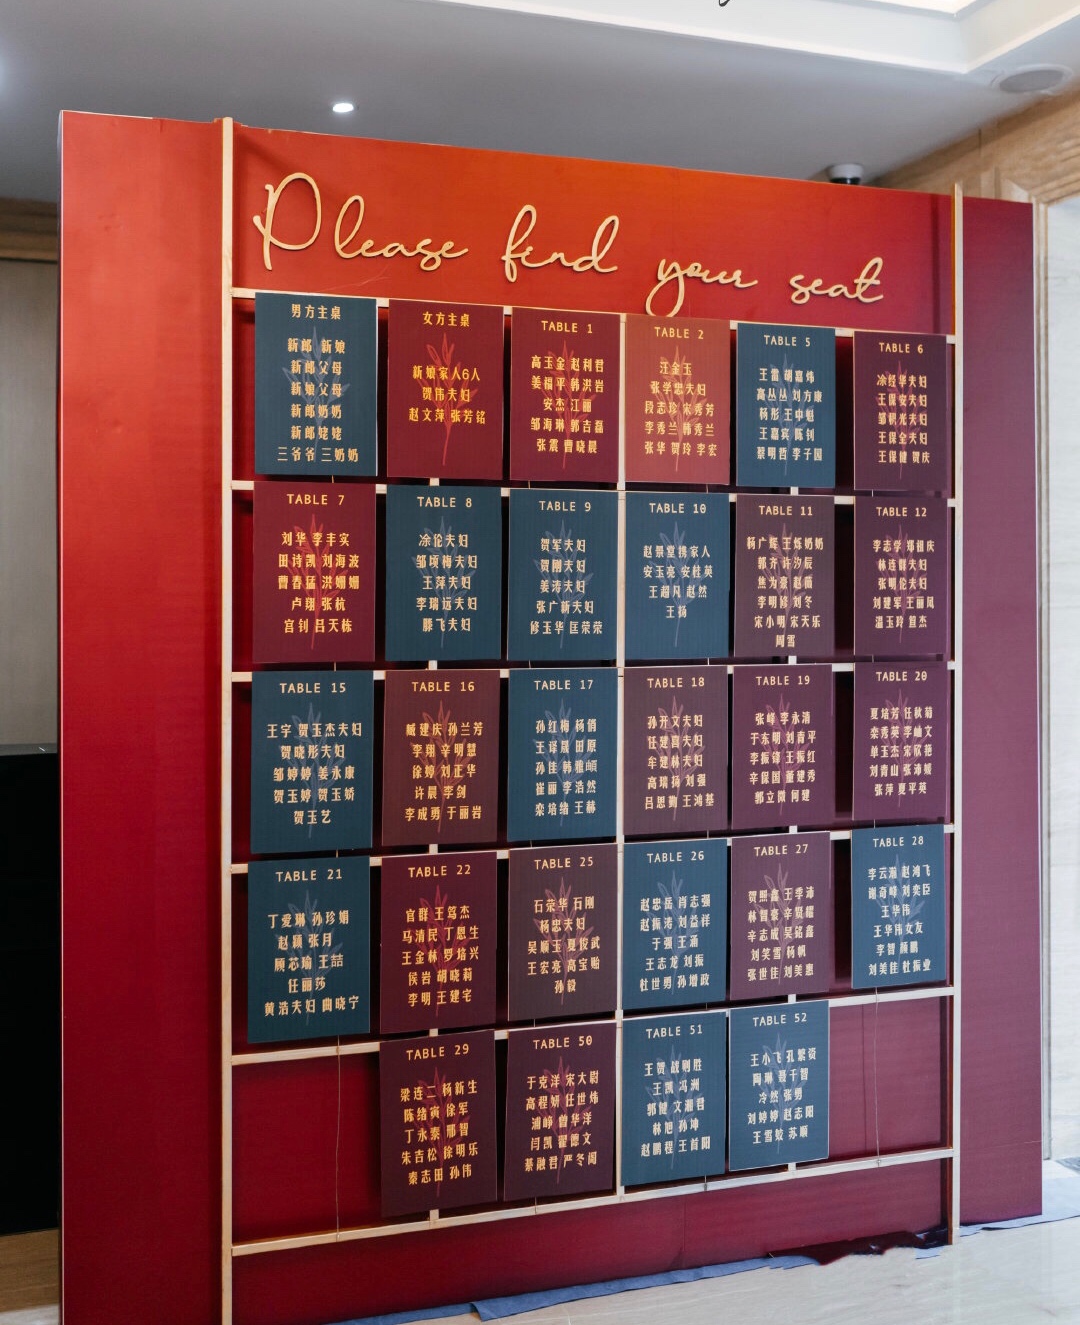 Please find your seat
男方主桌
新郎 新娘
新郎父母
新娘父母
新郎奶奶
新郎姥姥
三爷爷 三奶奶
女方主桌
新娘家人6人
贺伟夫妇
赵文萍 张芳铭
TABLE 1
高玉金 赵利君
姜福平 韩洪岩
安杰 江丽
邹海琳 郭吉磊
张震 曹晓晨
TABLE 2
汪金玉
张学忠夫妇
段志珍 宋秀芳
李秀兰 韩秀兰
张华 贺玲 李宏
TABLE 5
王雷 胡嘉炜
高丛丛 刘方康
杨彤 王中魁
王嘉宾 陈钊
蔡明哲 李子国
TABLE 6
涂经华夫妇
王保安夫妇
邹积光夫妇
王保全夫妇
王保健 贺庆
TABLE 7
刘华 李丰实
田诗凯 刘海波
曹春猛 洪姗姗
卢翔 张杭
宫钊 吕天栋
TABLE 8
涂伦夫妇
邹顷梅夫妇
王萍夫妇
李瑞远夫妇
滕飞夫妇
TABLE 9
贺军夫妇
贺刚夫妇
姜涛夫妇
张广新夫妇
修玉华 匡荣荣
TABLE 10
赵景堂携家人
安玉亮 安桂英
王超凡 赵然
王杨
TABLE 11
杨广辉 王烁奶奶
郭齐 许汐辰
焦为豪 赵薇
李明修 刘冬
宋小明 宋天乐
周雪
TABLE 12
李志学 郑祖庆
林连群夫妇
张明伦夫妇
刘建军 王丽凤
温玉玲 昝杰
TABLE 15
王宇 贺玉杰夫妇
贺晓彤夫妇
邹婷婷 姜永康
贺玉婷 贺玉娇
贺玉艺
TABLE 16
臧建庆 孙兰芳
李翔 辛明慧
徐婷 刘正华
许晨 李剑
李成勇 于丽岩
TABLE 17
孙红梅 杨俏
王译晟 田原
孙佳 韩雅頔
崔丽 李浩然
栾培绪 王赫
TABLE 18
孙开文夫妇
任建喜夫妇
牟建林夫妇
高瑞扬 刘强
吕思勤 王鸿基
TABLE 19
张峰 李永清
于东明 刘青平
李振锋 王振红
辛保国 董建秀
郭立微 何建
TABLE 20
夏培芳 任秋菊
栾秀英 李岫文
单玉杰 宋欣艳
刘青山 张沛媛
张萍 夏平英
TABLE 21
丁爱琳 孙珍娟
赵颖 张月
顾芯瑜 王喆
任丽莎
黄浩夫妇 曲晓宁
TABLE 22
官群 王笃杰
马清民 丁恩生
王金林 罗培兴
侯岩 胡晓莉
李明 王建宅
TABLE 25
石荣华 石刚
杨忠夫妇
吴顺玉 夏俊武
王宏亮 高宝贻
孙毅
TABLE 26
赵忠岳 肖志强
赵振涛 刘益祥
于强 王涵
王志龙 刘振
杜世勇 孙增政
TABLE 27
贺熙鑫 王季沛
林智豪 辛贤耀
辛志成 吴铭鑫
刘笑雪 杨帆
张世佳 刘美惠
TABLE 28
李云瀚 赵鸿飞
谢奇峰 刘奕臣
王华伟
王华伟女友
李智 颜鹏
刘美佳 杜振业
TABLE 29
梁连二 杨新生
陈绪寅 徐军
丁永泰 邢智
朱吉松 徐明乐
秦志田 孙伟
TABLE 50
于克洋 宋大尉
高程妍 任世炜
浦峥 曾华洋
闫凯 翟德文
綦融君 严冬阁
TABLE 51
王贺 战则胜
王凯 冯洲
郭健 文湘君
林旭 孙坤
赵鹏程 王首阳
TABLE 52
王小飞 孔繁资
陶琳 聂千智
冷然 张勇
刘婷婷 赵志阳
王雪姣 苏顺